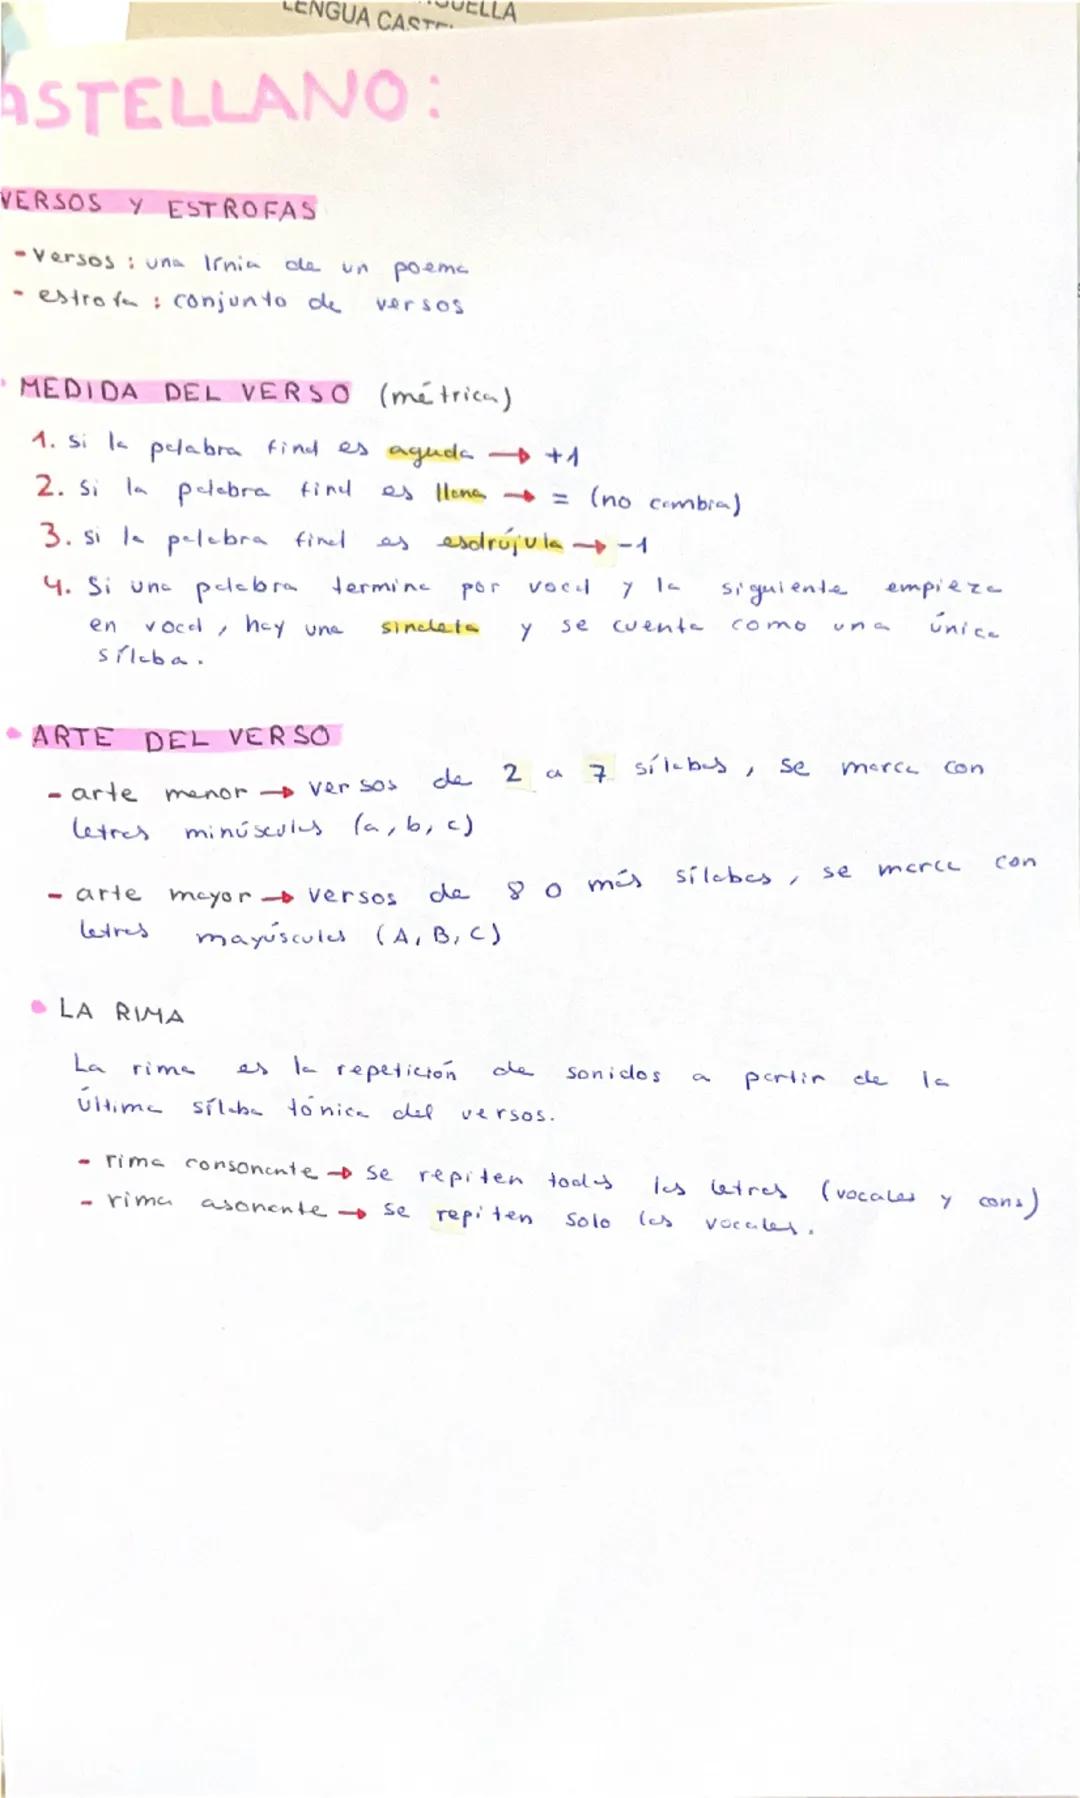 LENGUA
ASTELLANO:
VERSOS Y ESTROFAS
- Versos : una línia de un poema
- estrofa : conjunto de versos
• MEDIDA DEL VERSO (métrica)
1. si la palabra final es aguda → +1
2. si la palabra final es llana → = (no cambia)
3. si la palabra final es esdrújula → -1
4. Si una palabra termina por vocal y la siguiente empieza
en vocal, hay una sinalefa y se cuenta como una única
sílaba.
• ARTE DEL VERSO
- arte menor → versos de 2 a 7 sílabas, se marca con
letras minúsculas (a, b, c)
- arte mayor → versos de 8 o más sílabas, se marca con
letras mayúsculas (A, B, C)
• LA RIMA
La rima es la repetición de sonidos a partir de la
última sílaba tónica del versos.
- rima consonante → se repiten todas las letras (vocales y cons)
- rima asonante → se repiten solo las vocales.